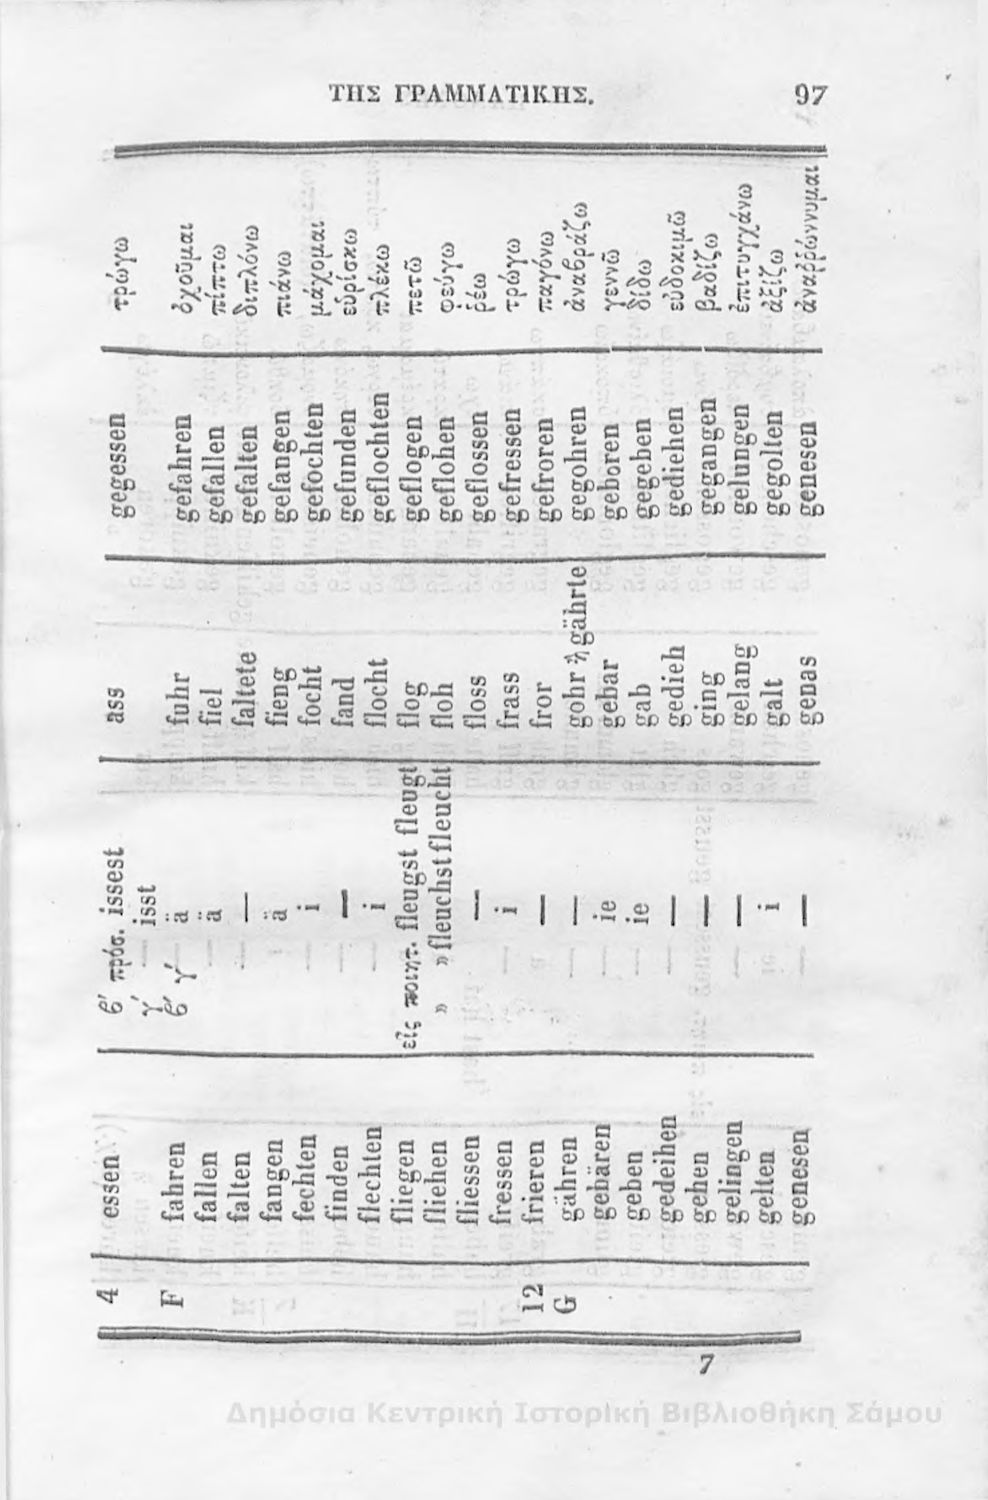 ΤΗΣ ΓΡΑΜΜΑΤΙΚΗΣ. 97
4 essen β' πρόσ. issest ass gegessen τρώγω
γ' — isst
F fahren β' γ' ä fuhr gefahren ὀχοῦμαι
fallen ä fiel gefallen πίπτω
falten — faltete gefalten διπλόνω
fangen ä fieng gefangen πιάνω
fechten i focht gefochten μάχομαι
finden — fand gefunden εὑρίσκω
flechten i flocht geflochten πλέκω
fliegen εἰς ποιητ. fleugst fleugt flog geflogen πετῶ
fliehen » » fleuchst fleucht floh geflohen φεύγω
fliessen — floss geflossen ῥέω
fressen i frass gefressen τρώγω
12 frieren — fror gefroren παγόνω
G gähren — gohr ἢ gährte gegohren ἀναβράζω
gebären ie gebar geboren γεννῶ
geben ie gab gegeben δίδω
gedeihen — gedieh gediehen εὐδοκιμῶ
gehen — ging gegangen βαδίζω
gelingen — gelang gelungen ἐπιτυγχάνω
gelten i galt gegolten ἀξίζω
genesen — genas genesen ἀναῤῥώννυμαι
7
Δημόσια Κεντρική Ιστορική Βιβλιοθήκη Σάμου